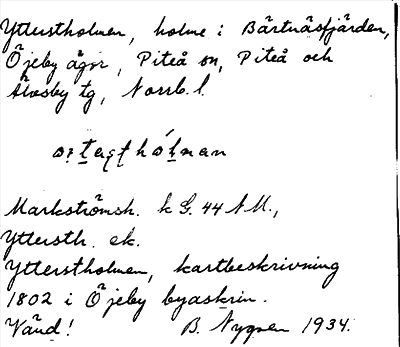 Ytterstholmen, holme i Bärtnäsfjärden,
Öjeby ägor, Piteå sn, Piteå och
Älvsby tg, Norrb. l.
Markströmsh. k G. 44 N.M.,
Yttersth. ek.
Ytterstholmen, kartbeskrivning
1802 i Öjeby byaskrin.
Vänd! B. Nygren 1934.